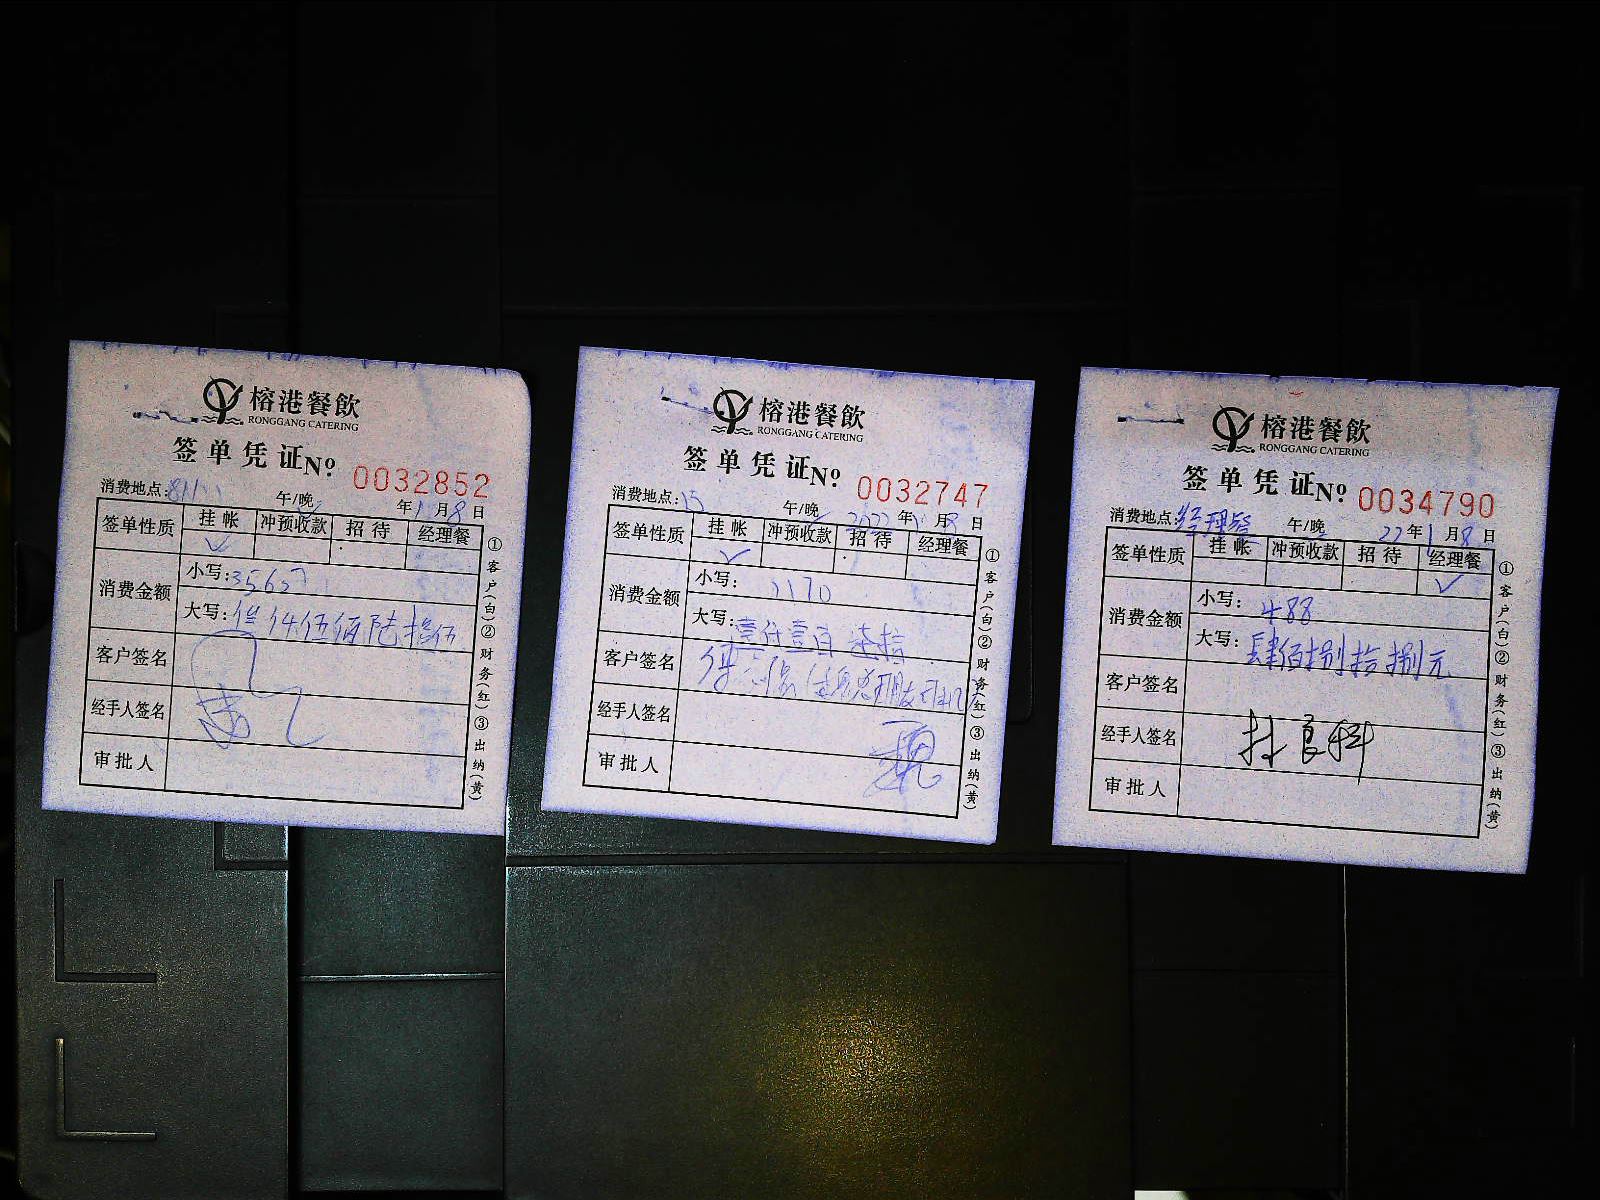 榕港餐飲
RONGGANG CATERING
签单凭证 No 0032852
消费地点: 午/晚 年1月8日
签单性质 挂帐 冲预收款 招待 经理餐
✓
消费金额 小写:
大写: 仟伍佰陆拾伍
客户签名
经手人签名
审批人
①客户(白)②财务(红)③出纳(黄)
榕港餐飲
RONGGANG CATERING
签单凭证 No 0032747
消费地点:15 午/晚 2022年1月8日
签单性质 挂帐 冲预收款 招待 经理餐
✓
消费金额 小写: 1170
大写:壹仟壹百柒拾
客户签名
经手人签名
审批人
①客户(白)②财务(红)③出纳(黄)
榕港餐飲
RONGGANG CATERING
签单凭证 No 0034790
消费地点:经理餐 午/晚 22年1月8日
签单性质 挂帐 冲预收款 招待 经理餐
✓
消费金额 小写: 488
大写:肆佰捌拾捌元
客户签名
经手人签名
审批人
①客户(白)②财务(红)③出纳(黄)